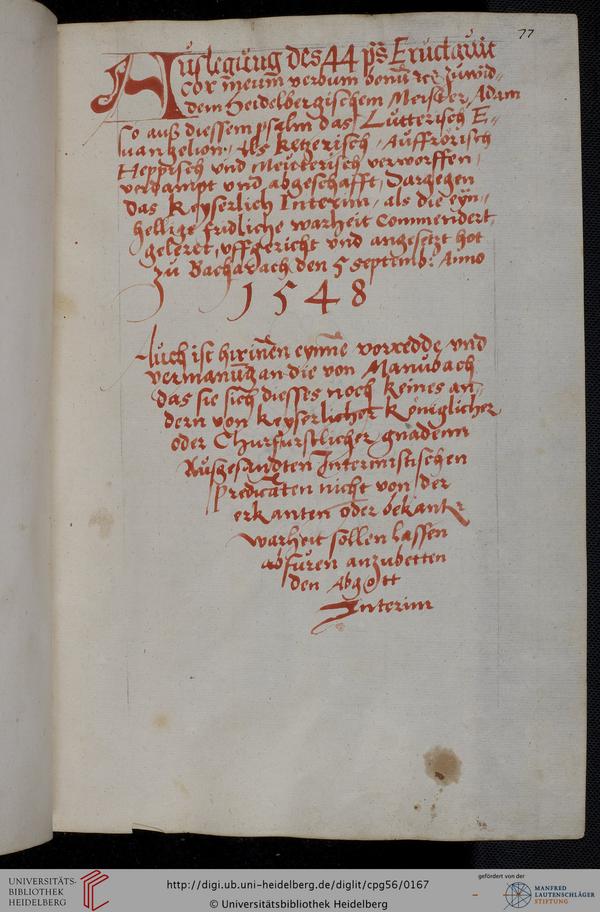 77
Auslegung des 44 ps Eructauit
cor meum verbum bonū ꝛc zuwid-
dem Heidelbergischem Meister Adam
so auß diessem psalm das Lutterisch E-
uangelion, Als ketzerisch, Auffrörisch
Heppisch vnd Meutterisch verworffen,
verdampt vnd abgeschafft, Dargegen
das Keyserlich Interim, als die eyn-
hellige fridliche warheit Commendert,
geleret, vffgericht vnd angesetzt hot
zu Bacharach den 5 septemb: Anno
1548
Auch ist hirinnen eynne vorredde vnd
vermanung an die von Manubach
das sie sich diesses noch keines an-
dern von keyserlicher Königlicher
oder Churfurstlicher gnadenn
Außgesandten Interimistischen
Predicāten nicht von der
erkanten oder bekantē
warheit sollen lassen
abfuren anzubetten
den Abgott
Interim
UNIVERSITÄTS-
BIBLIOTHEK
HEIDELBERG
http://digi.ub.uni-heidelberg.de/diglit/cpg56/0167
© Universitätsbibliothek Heidelberg
gefördert von der
MANFRED
LAUTENSCHLÄGER
STIFTUNG